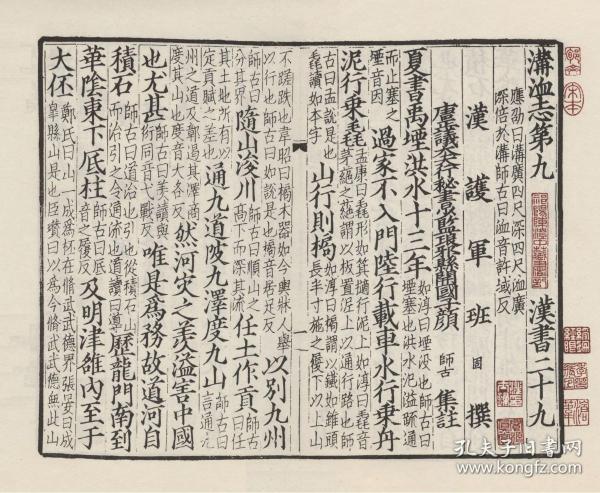 溝洫志第九 應劭曰溝廣四尺深四尺洫廣深倍於溝師古曰洫音許域反 漢書二十九
漢護軍班固撰
唐正議大夫行秘書少監琅邪縣開國子顏師古集註
夏書禹堙洪水十三年 如淳曰堙没也師古曰堙塞也洪水氾溢疏通
而止塞之堙音因 過家不入門陸行載車水行乗舟
泥行乗毳 孟康曰毳形如箕擿行泥上如淳曰毳音茅蕝之蕝謂以板置泥上以通行路也師
古曰孟說是也毳讀如本字 山行則梮 如淳曰梮謂以鐵如錐頭長半寸施之履下以上山
不蹉跌也韋昭曰梮木器如今輿牀人舉以行也師古曰如說是也梮音居足反 以別九州
師古曰分其界 隨山浚川 師古曰順山之高下而深其流 任土作貢 師古曰任
其土地所有以定貢賦之差也 通九道陂九澤度九山 師古曰言通九
州之道及鄣遏其澤商度其山也度音大各反 然河災之羨溢害中國
也尤甚 師古曰羨讀與衍同音弋戰反 唯是為務故道河自
積石 師古曰道治也引也從積石山而治引之令通流也道讀曰導 歷龍門南到
華陰東下厎柱 師古曰厎音之履反 及明津雒內至于
大伾 鄭氏曰山一成為伾在脩武武德界張晏曰成皋縣山是也臣瓚曰以為今脩武武德無此山
孔夫子旧书网
www.kongfz.com